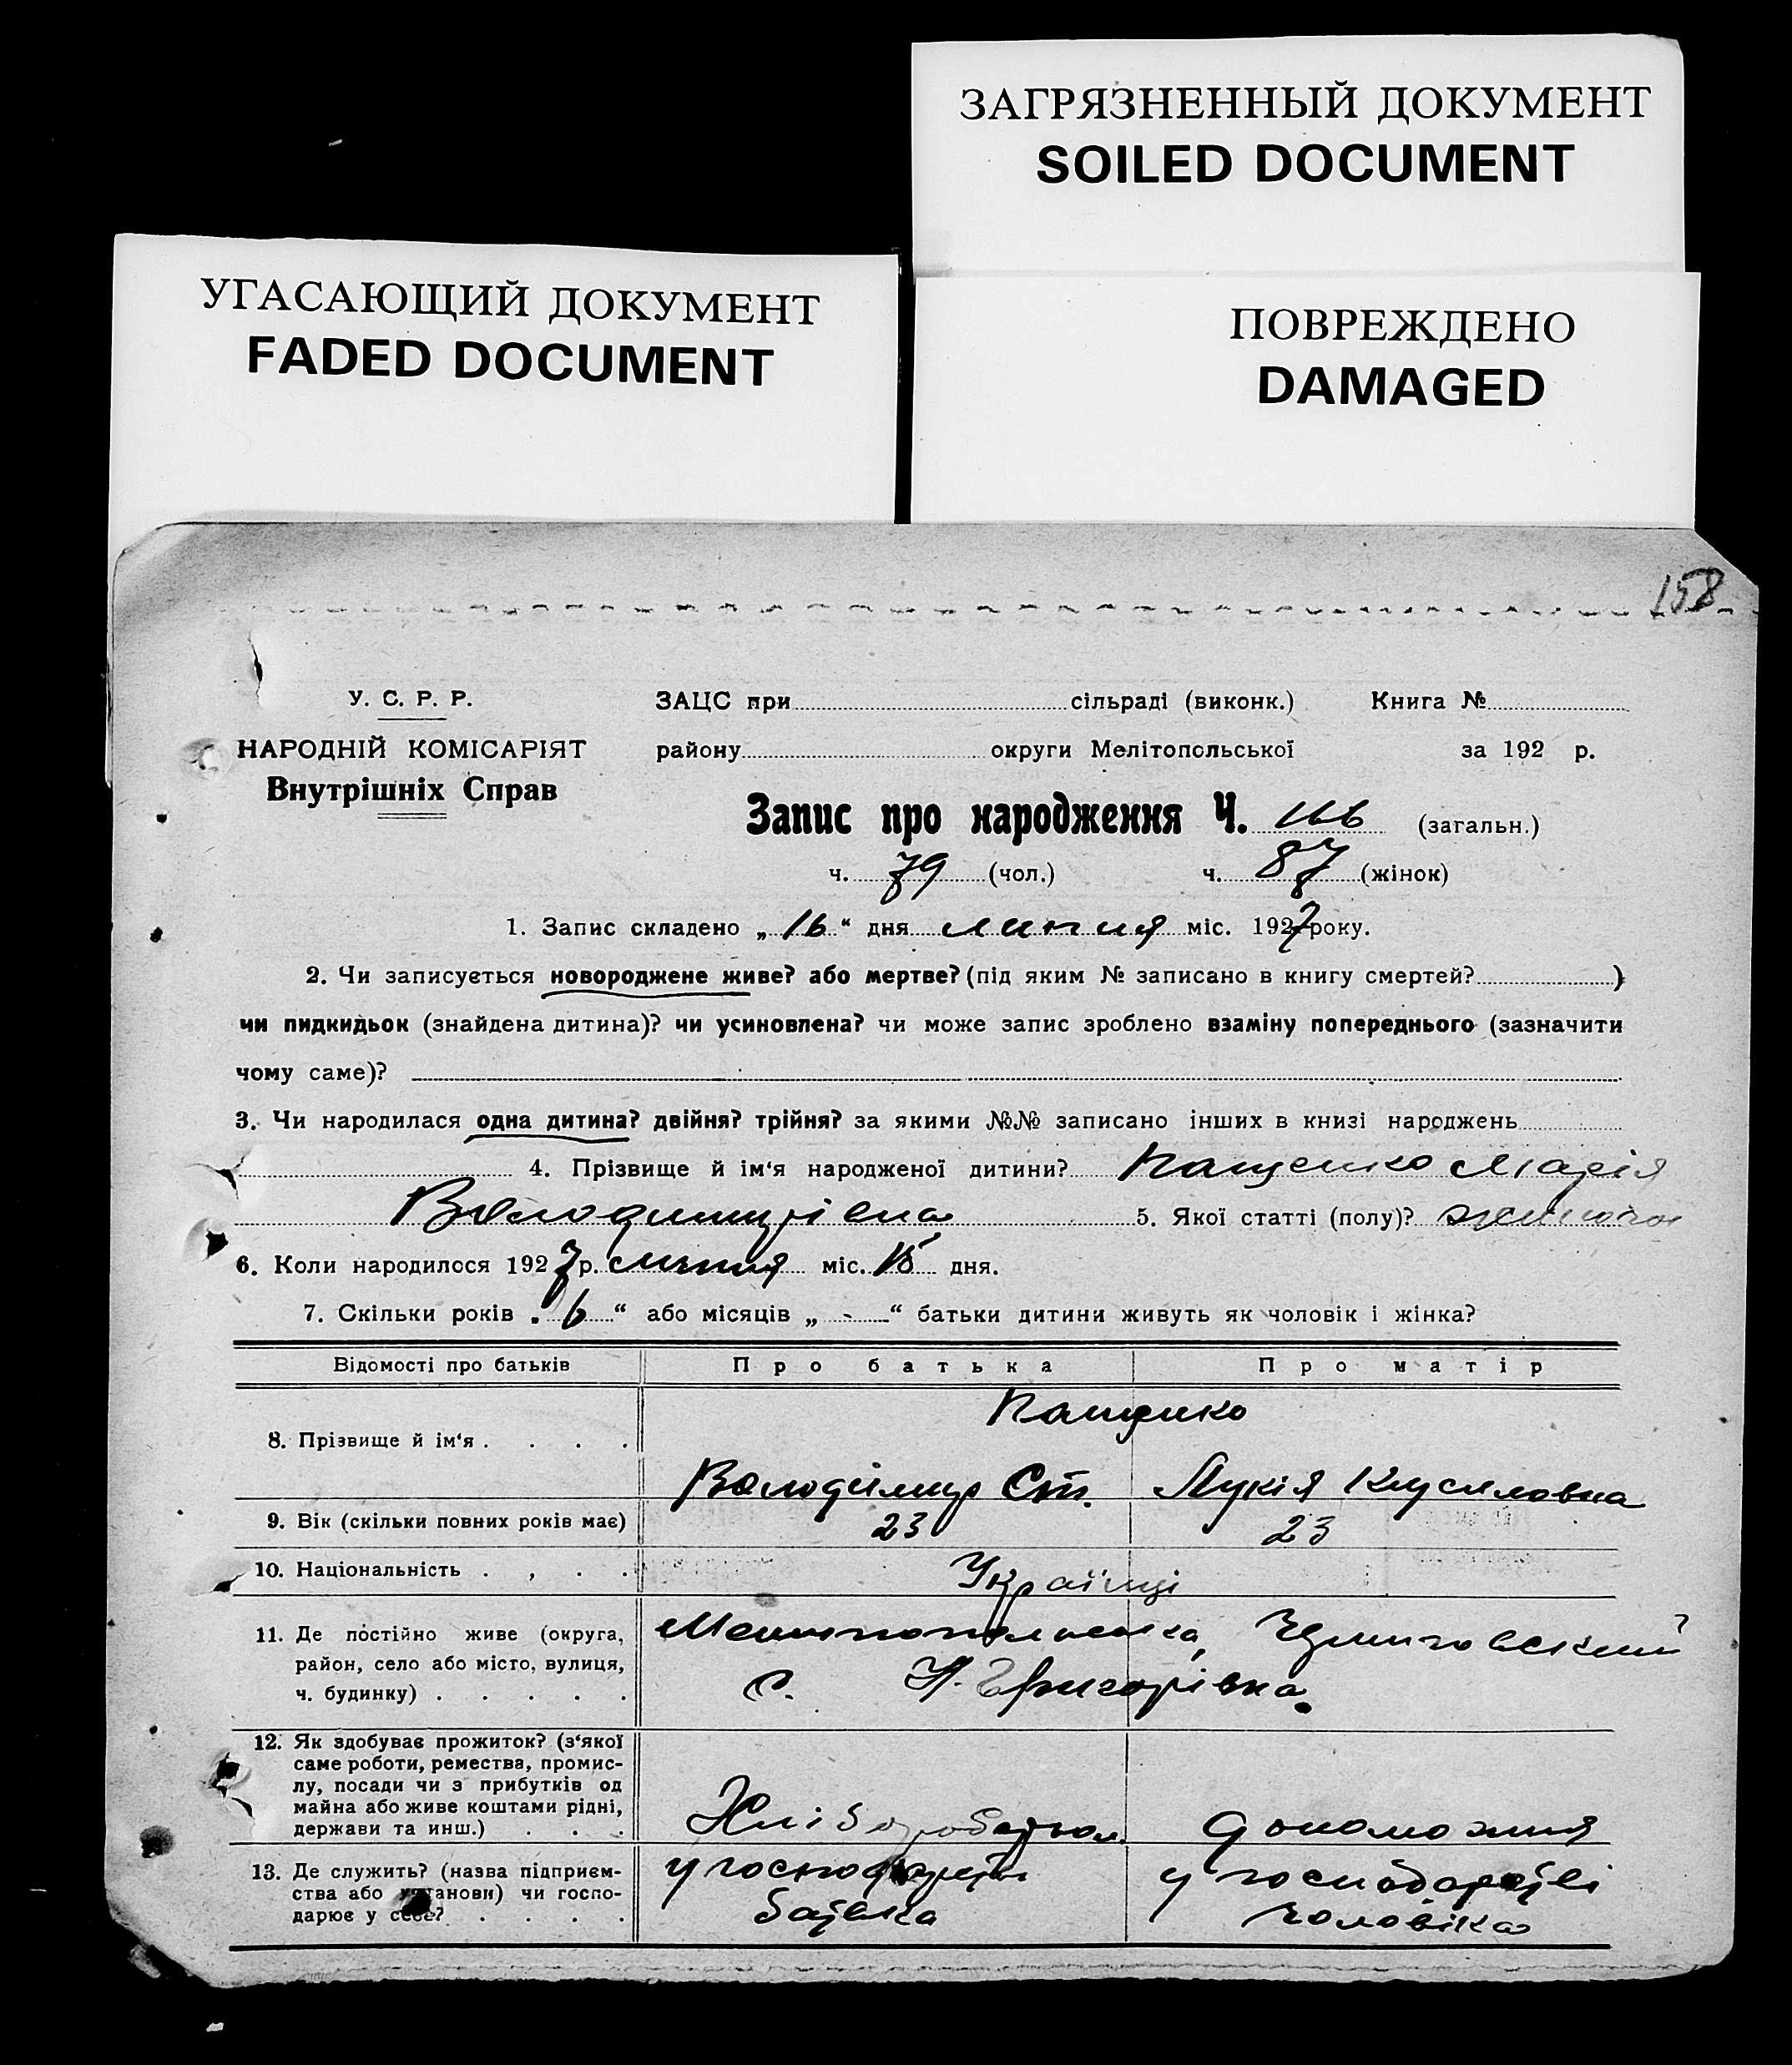 ЗАГРЯЗНЕННЫЙ ДОКУМЕНТ
SOILED DOCUMENT
УГАСАЮЩИЙ ДОКУМЕНТ
FADED DOCUMENT
ПОВРЕЖДЕНО
DAMAGED
158
У. С. Р. Р.
НАРОДНІЙ КОМІСАРІЯТ
Внутрішніх Справ
ЗАЦС при сільраді (виконк.) Книга №
району округи Мелітопольської за 192 р.
Запис про народження Ч. 166 (загальн.)
ч. 79 (чол.) ч. 87 (жінок)
1. Запис складено „ 16 “ дня липня міс. 1927 року.
2. Чи записується новороджене живе? або мертве? (під яким № записано в книгу смертей? )
чи пидкидьок (знайдена дитина)? чи усиновлена? чи може запис зроблено взаміну попереднього (зазначити
чому саме)?
3. Чи народилася одна дитина? двійня? трійня? за якими №№ записано інших в книзі народжень
4. Прізвище й ім‘я народженої дитини? Пащенко Марія
Володимирівна 5. Якої статті (полу)? жиноча
6. Коли народилося 1927 р. липня міс. 15 дня.
7. Скільки років „ 6 “ або місяців „ - “ батьки дитини живуть як чоловік і жінка?
Відомості про батьків Про батька Про матір
8. Прізвище й ім‘я . . . .
Пащенко
Володимир Ст. Лукія
9. Вік (скільки повних років має) 23 23
10. Національність . , . . Українці
11. Де постійно живе (округа,
район, село або місто, вулиця,
ч. будинку) . . . . .
Мелітопольська,
с. Н. Григорівка.
12. Як здобуває прожиток? (з‘якої
саме роботи, ремества, промис-
лу, посади чи з прибутків од
майна або живе коштами рідні,
держави та инш.) . . .
Хліборобством допоможня
13. Де служить? (назва підприєм-
ства або установи) чи госпо-
дарює у себе? . . . .
у господарстві
батька
у господарстві
чоловіка